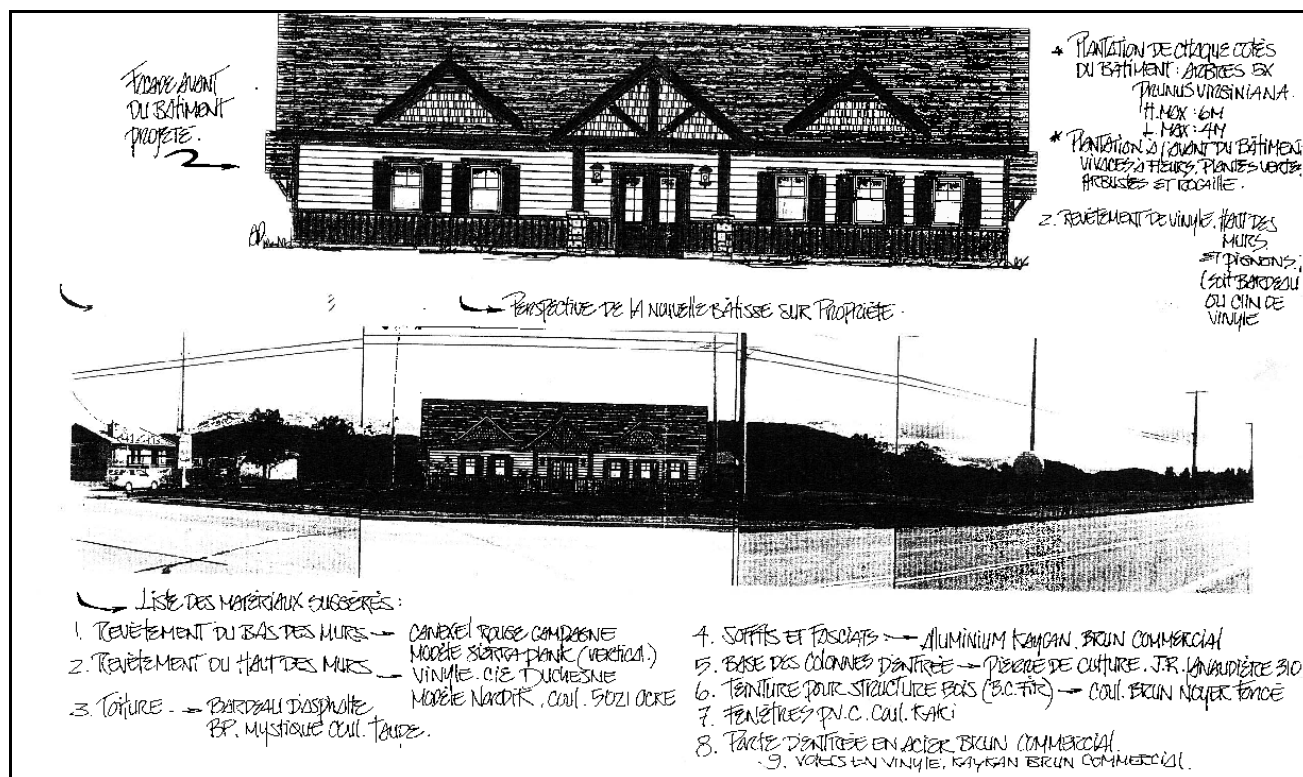 FACADE AVANT
DU BÂTIMENT
PROJETÉ.
* PLANTATION DE CHAQUE COTÉS
DU BÂTIMENT: ARBRES EX
PRUNUS VIRGINIANA.
H. MAX: 6M
L. MAX: 4M
* PLANTATION À L'AVANT DU BÂTIMENT
VIVACES À FLEURS, PLANTES VERTES,
ARBUSTES ET ROCAILLE.
2. REVÊTEMENT DE VINYLE, HAUT DES
MURS
ET PIGNONS,
(SOIT BARDEAU
OU CLIN DE
VINYLE
PERSPECTIVE DE LA NOUVELLE BÂTISSE SUR PROPRIÉTÉ.
LISTE DES MATÉRIAUX SUGGÉRÉS:
1. REVÊTEMENT DU BAS DES MURS → CANEXEL ROUGE CAMPAGNE
MODÈLE SIERRA PLANK (VERTICAL)
2. REVÊTEMENT DU HAUT DES MURS → VINYLE. CIE DUCHESNE
MODÈLE NORDIK, COUL. 5021 OCRE
3. TOITURE → BARDEAU D'ASPHALTE
BP. MYSTIQUE COUL. TAUPE.
4. SOFFITS ET FASCIAS → ALUMINIUM KAYCAN. BRUN COMMERCIAL
5. BASE DES COLONNES D'ENTRÉE → PIERRE DE CULTURE. J.R. LANAUDIÈRE 310
6. TEINTURE POUR STRUCTURE BOIS (B.C. FIR) → COUL. BRUN NOYER FONCÉ
7. FENÊTRES P.V.C. COUL. KAKI
8. PORTE D'ENTRÉE EN ACIER BRUN COMMERCIAL.
9. VOLETS EN VINYLE, KAYKAN BRUN COMMERCIAL.